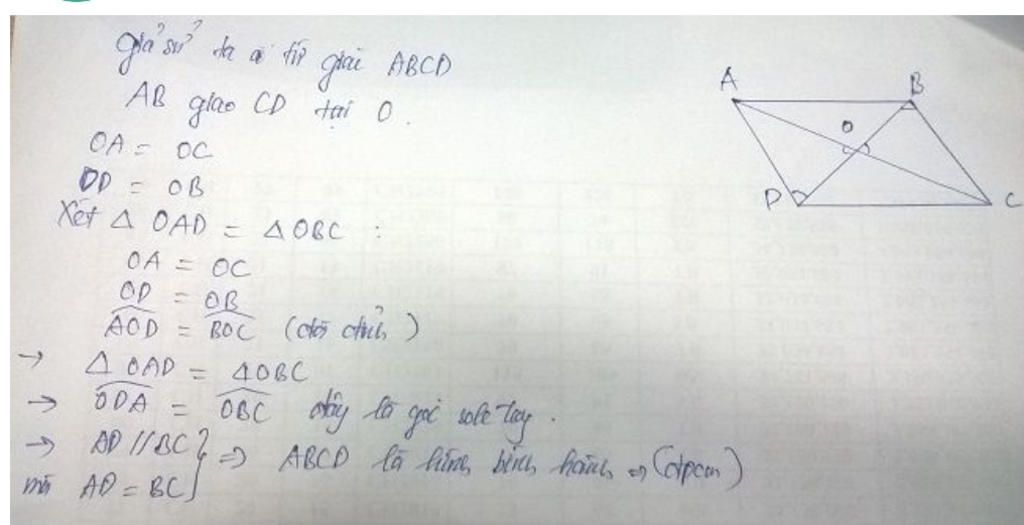 Giả sử ta có tứ giác ABCD
AB giao CD tại O.
OA = OC
OD = OB
Xét Δ OAD = Δ OBC :
OA = OC
OD = OB
AOD = BOC (đối đỉnh)
→ Δ OAD = ΔOBC
→ ODA = OBC đây là góc sole
→ AD // BC } => ABCD là hình bình hành => (đpcm)
mà AD = BC
A
B
O
D
C